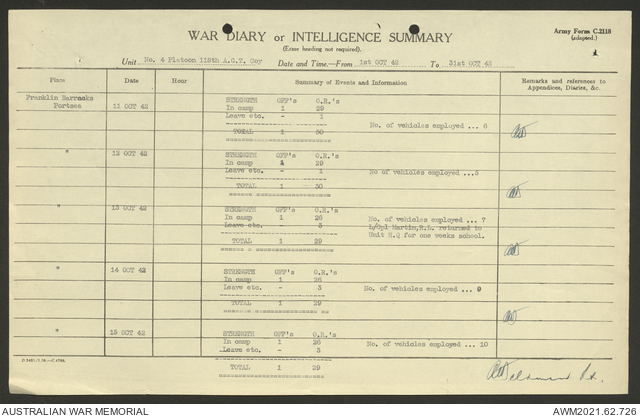 WAR DIARY or INTELLIGENCE SUMMARY
(Erase heading not required).
Army Form C.2118
(adapted.)
Unit No. 4 Platoon 118th A.G.T. Coy Date and Time.—From 1st OCT 42 To 31st OCT 42
Place Date Hour Summary of Events and Information Remarks and references to
Appendices, Diaries, &c.
Franklin Barracks 11 OCT 42 STRENGTH OFF's O.R.'s
Portsea In camp 1 29
Leave etc. - 1
TOTAL 1 30 No. of vehicles employed ... 6
" 12 OCT 42 STRENGTH OFF's O.R.'s
In camp 1 29
Leave etc. - 1 No of vehicles employed ...5
TOTAL 1 30
" 13 OCT 42 STRENGTH OFF's O.R.'s
In camp 1 26 No. of vehicles employed ... 7
Leave etc. - 3 L/Cpl Martin,R.L. returned to
Unit H.Q for one weeks school.
TOTAL 1 29
" 14 OCT 42 STRENGTH OFF's O.R.'s
In camp 1 26
Leave etc. - 3 No. of vehicles employed ... 9
TOTAL 1 29
" 15 OCT 42 STRENGTH OFF's O.R.'s
In camp 1 26 No of vehicles employed ... 10
Leave etc. - 3
TOTAL 1 29
AUSTRALIAN WAR MEMORIAL AWM2021.62.726